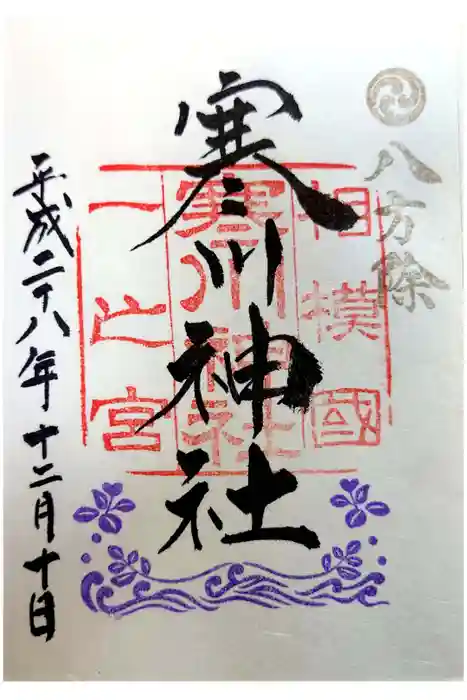 八方除
寒川神社
相模國
寒川神社
一之宮
平成二十八年十二月十日